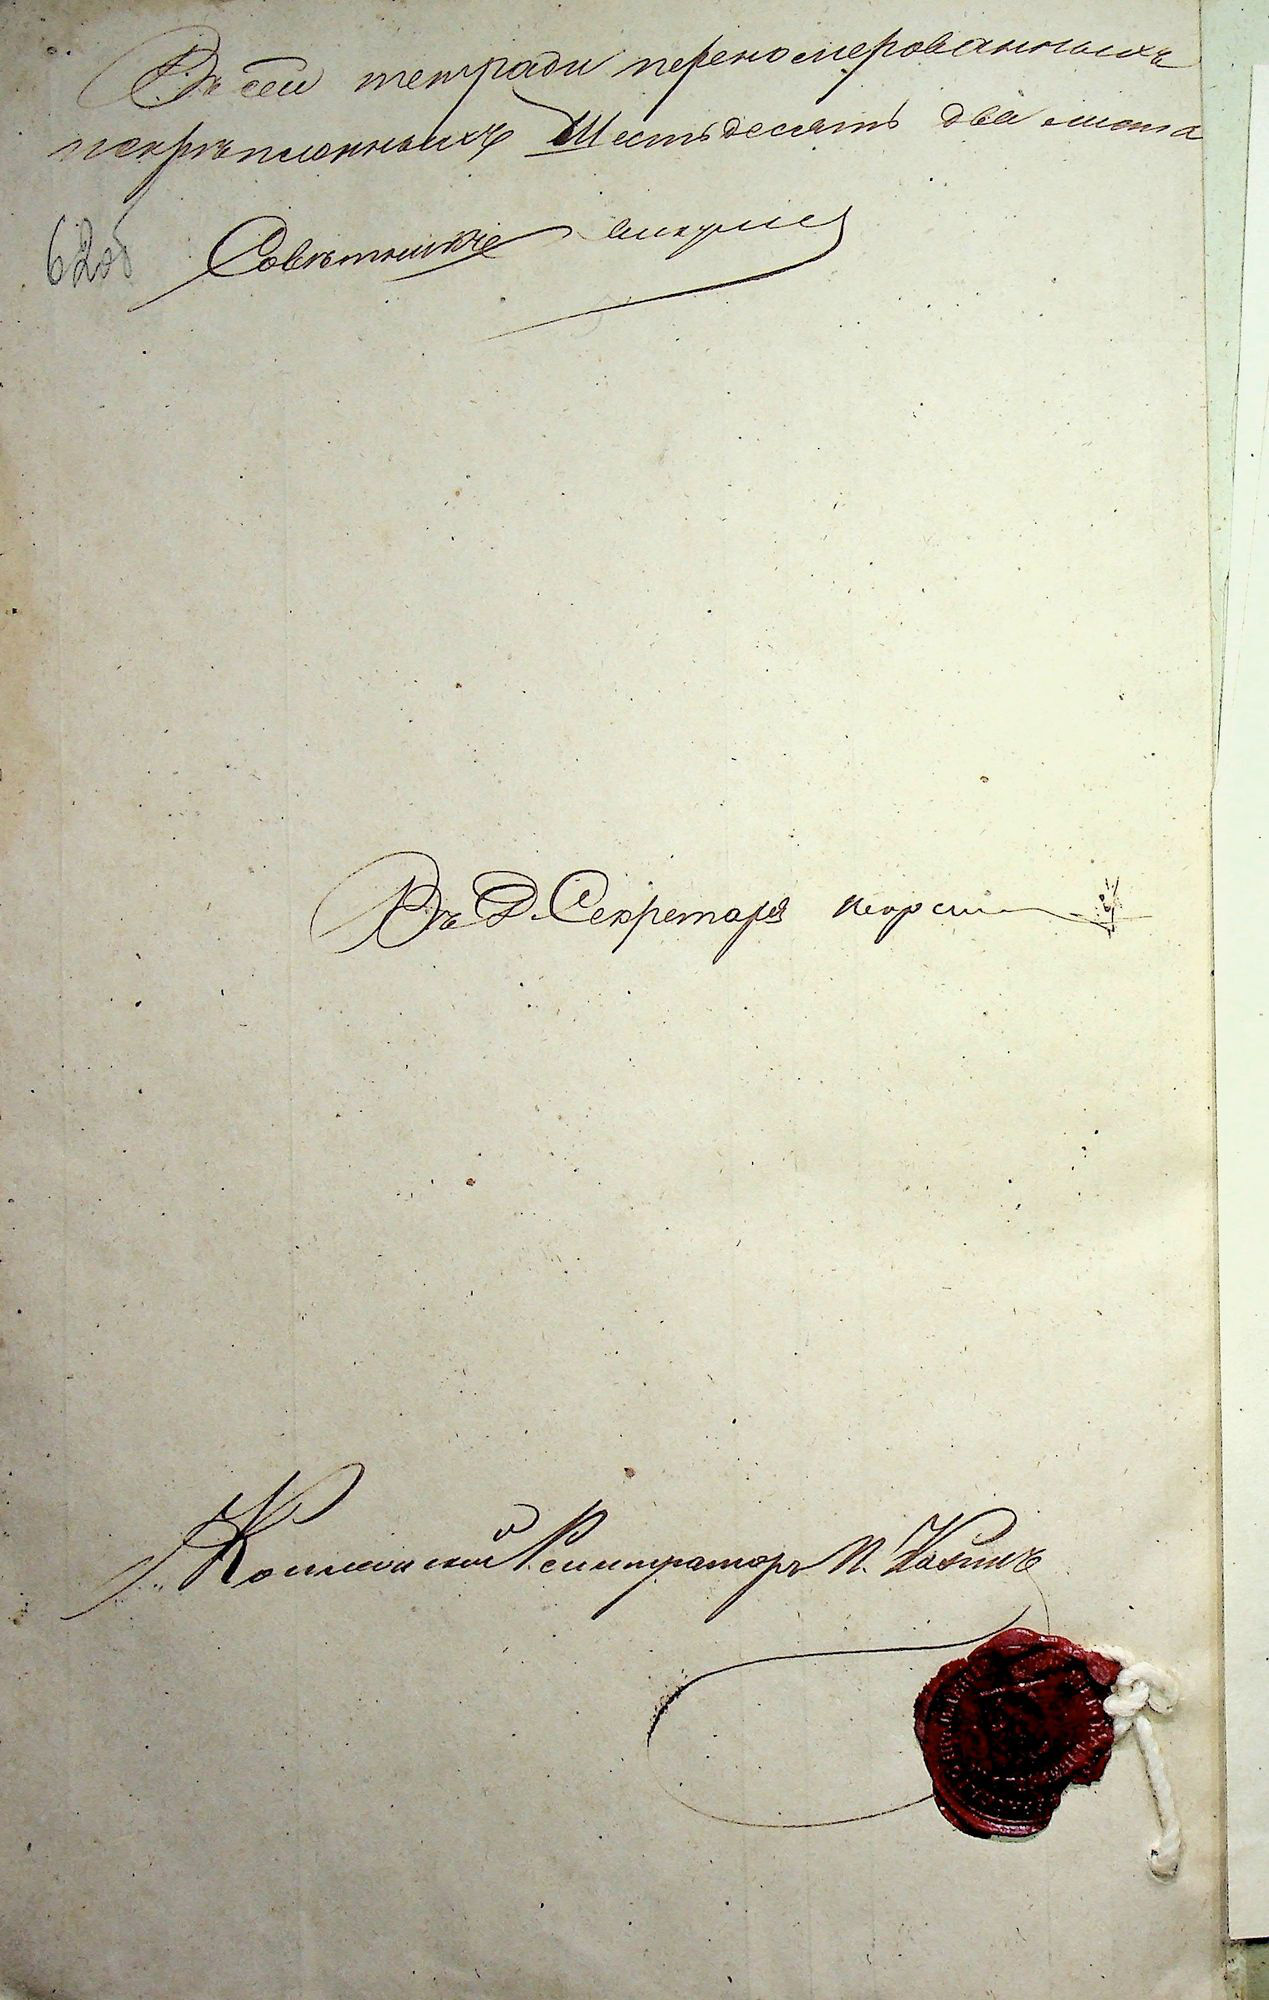 Въ сей тетради перенумерованныхъ
и скрѣпленныхъ Шестьдесятъ два листа
62об
Совѣтникъ
Въ Д. Секретаря
Коллежскій Регистраторъ П.